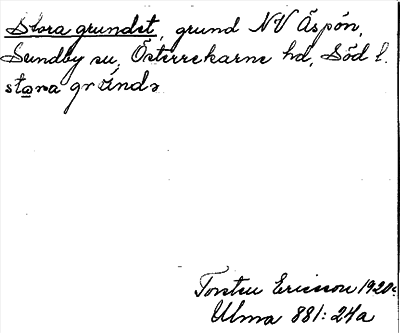 Stora grundet, grund NV Äspön,
Sundby sn, Österrekarne hd, Söd l.
stora
Torsten Ericsson 1920.
Ulma 881:24a